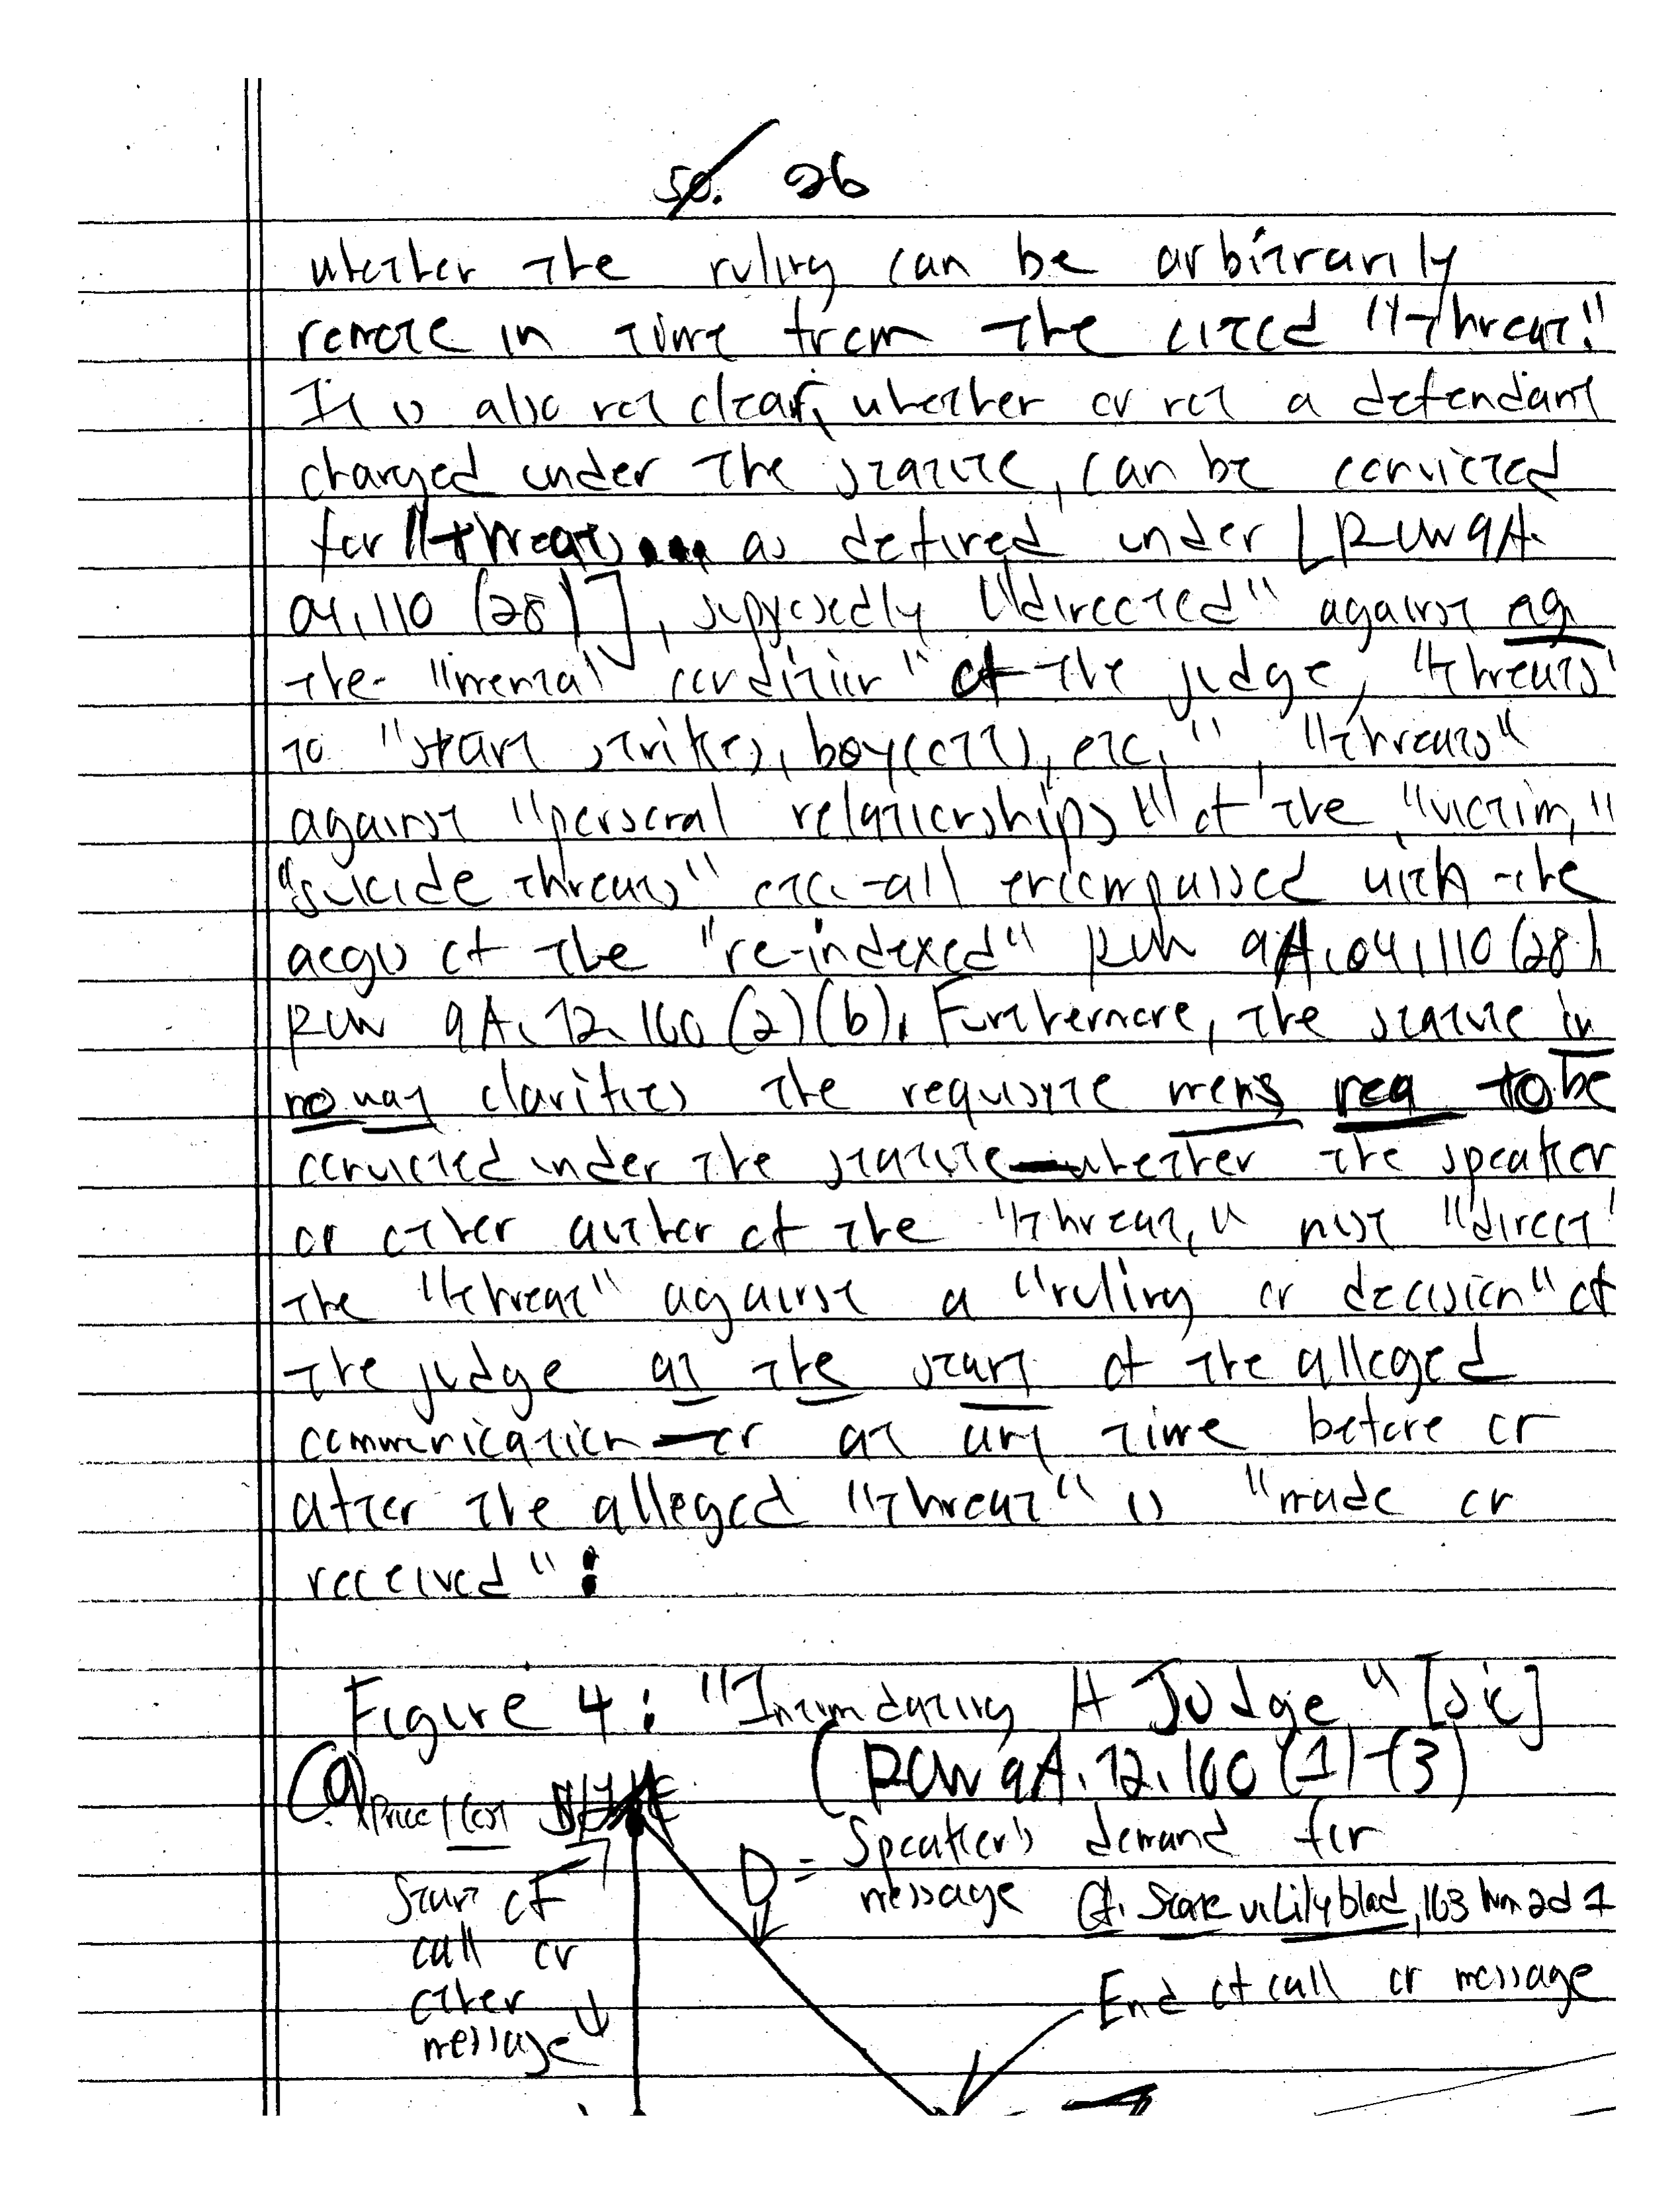 50. 26
whether the ruling can be arbitrarily
remote in time from the cited "threat."
It is also not clear, whether or not a defendant
charged under the statute, can be convicted
for "threats as defined under [RCW 9A.
04.110 (28)], supposedly "directed" against ag
the "mental condition" of the judge, "threats"
to "start strikes, boycotts, etc.", "threats"
against "personal relationships" of the "victim,"
"suicide threats" etc.-all encompassed with the
aegis of the "re-indexed" RCW 9A.04.110 (28)
RCW 9A.72.160 (2)(b). Furthermore, the statute in
no way clarifies the requisite mens rea to be
convicted under the statute—whether the speaker
or other author of the "threat," must "direct"
the "threat" against a "ruling or decision" of
the judge at the start of the alleged
communication—or at any time before or
after the alleged "threat" is "made or
received":
Figure 4: "Intimidating A Judge" [sic]
(RCW 9A.72.160 (1)-(3)
(a) Price/Cost
D = Speaker's demand for
message Cf. State v. Lilyblad, 163 Wn 2d 1
Start of
call or
other
message
End of call or message